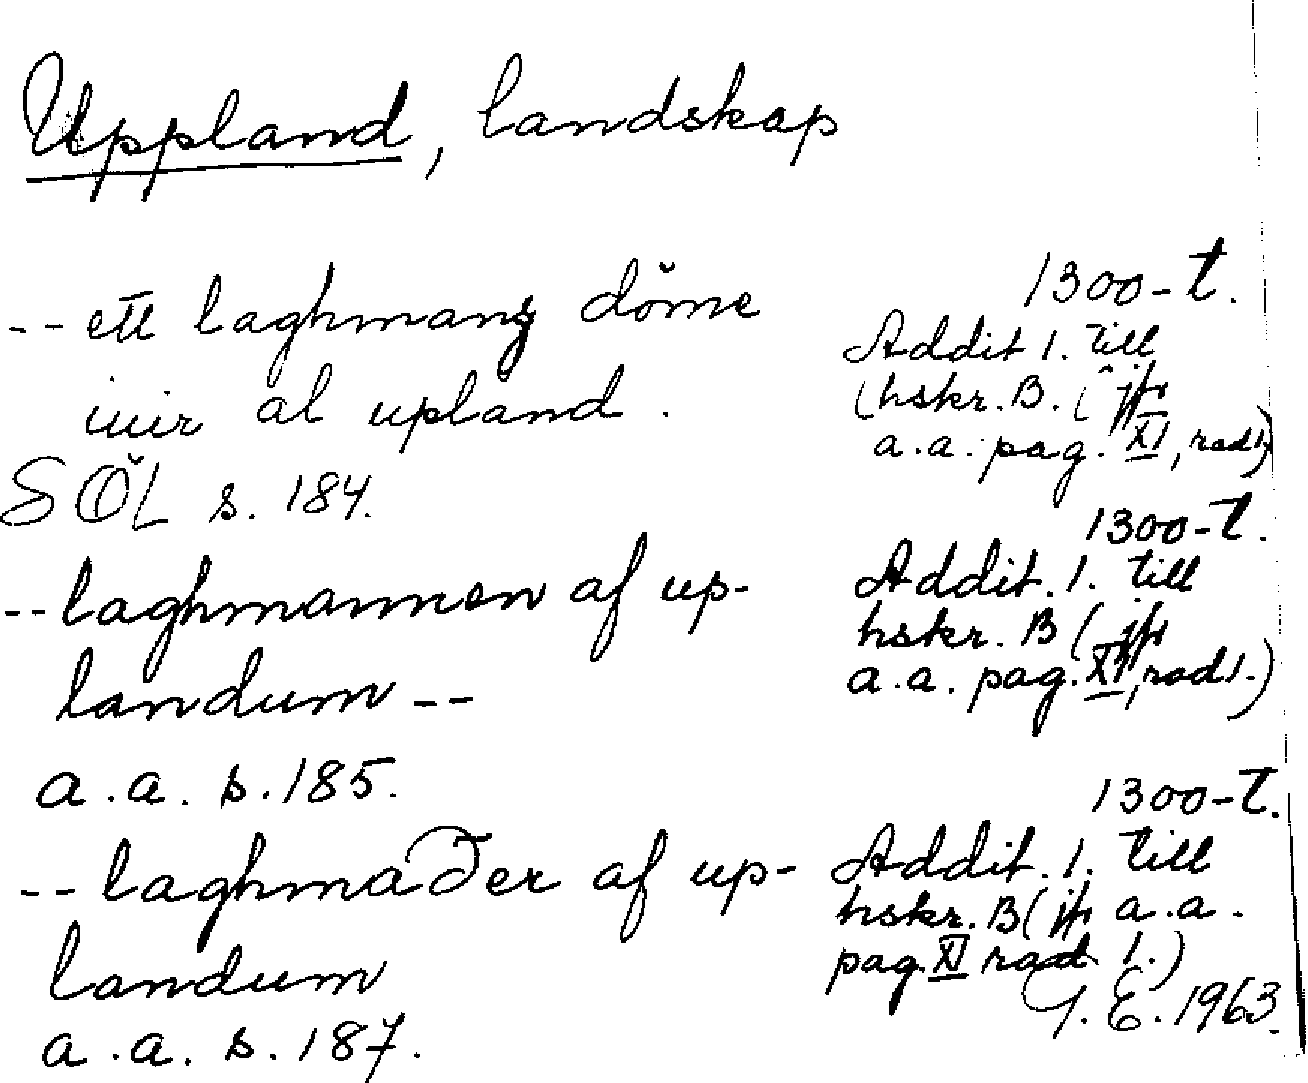 Uppland, landskap
-- ett laghmanz döme
iuir al upland.
SÖL s. 184.
1300-t.
Addit 1. till
(hskr. B. (jfr
a.a. pag. XI, rad 1)
-- laghmannen af up-
landum --
a.a. s. 185.
1300-t.
Addit. 1. till
hskr. B (jfr
a.a. pag. XI, rad 1.)
-- laghmaðer af up-
landum
a.a. s. 187.
1300-t.
Addit. 1. till
hskr. B (jfr a.a.
pag. XI rad 1.)
G. E. 1963.